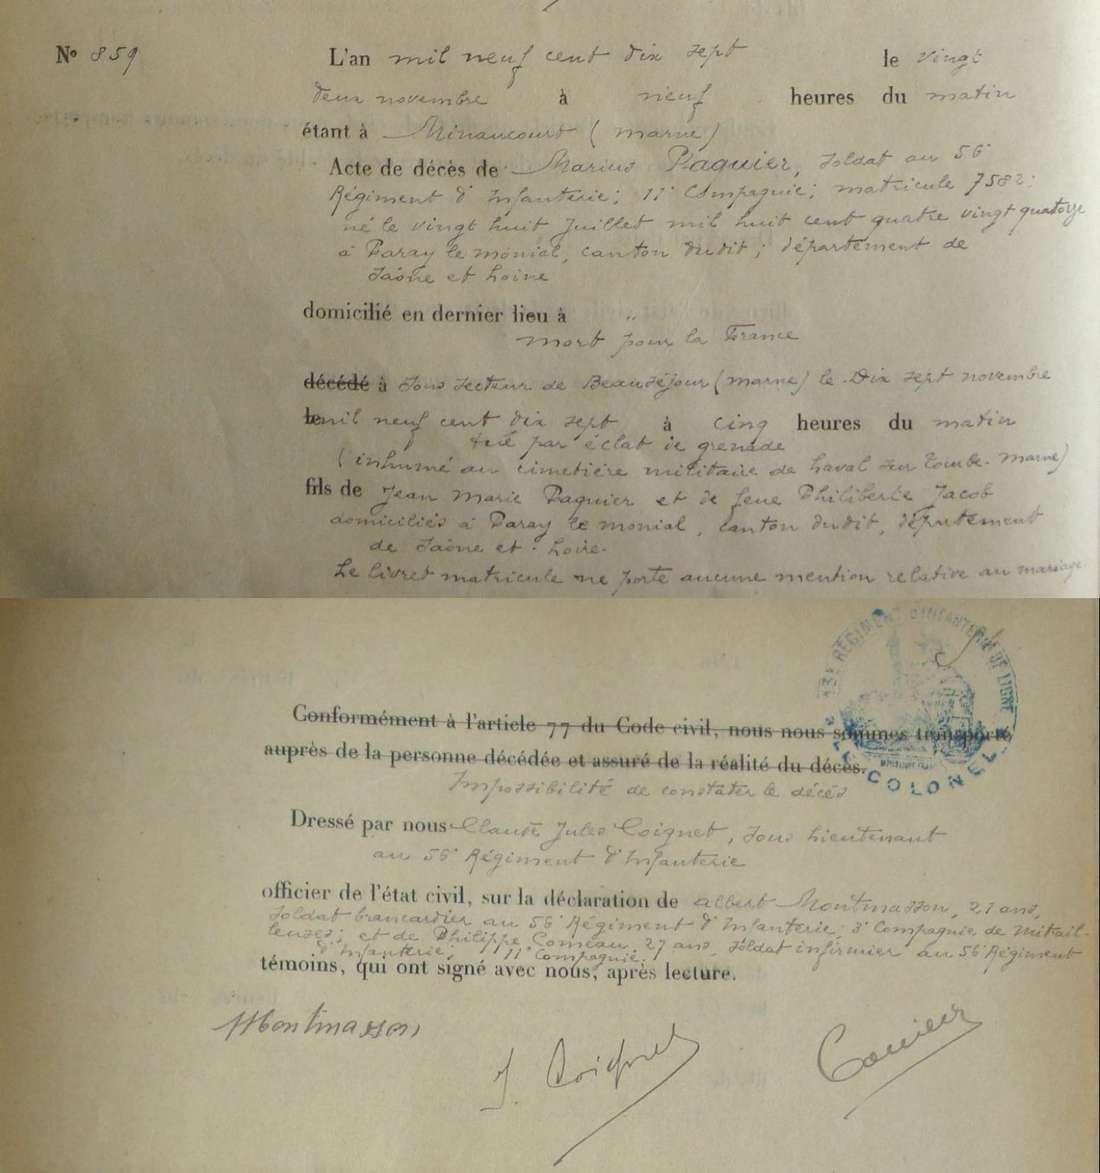 N° 859
L'an mil neuf cent dix sept le vingt
deux novembre à neuf heures du matin
étant à Minaucourt (marne)
Acte de décès de Marius Paquier, soldat au 56e
Régiment d'Infanterie; 11e Compagnie; matricule 7582;
né le vingt huit Juillet mil huit cent quatre vingt quatorze
à Paray le monial, canton dudit; département de
Saône et Loire
domicilié en dernier lieu à "
mort pour la France
décédé à Sous secteur de Beauséjour (marne) le Dix sept novembre
le mil neuf cent dix sept à cinq heures du matin
tué par éclat de grenade
(inhumé au cimetière militaire de Laval sur Tourbe. Marne)
fils de Jean Marie Paquier et de feue Philiberte Jacob
domiciliés à Paray le monial, canton dudit, département
de Saône et Loire.
Le livret matricule ne porte aucune mention relative au mariage
RÉGIMENT D'INFANTERIE DE LIGNE
COLONEL
Conformément à l'article 77 du Code civil, nous nous sommes transporté
auprès de la personne décédée et assuré de la réalité du décès.
Impossibilité de constater le décès
Dressé par nous Claude Jules Coignet, Sous Lieutenant
au 56e Régiment d'Infanterie
officier de l'état civil, sur la déclaration de Albert Montmasson, 21 ans,
soldat brancardier au 56e Régiment d'Infanterie; 3e Compagnie de Mitrail-
leuses; et de Philippe Comeau, 27 ans, soldat infirmier au 56e Régiment
d'Infanterie; 11e Compagnie.
témoins, qui ont signé avec nous, après lecture.
Montmasson
J. Coignet